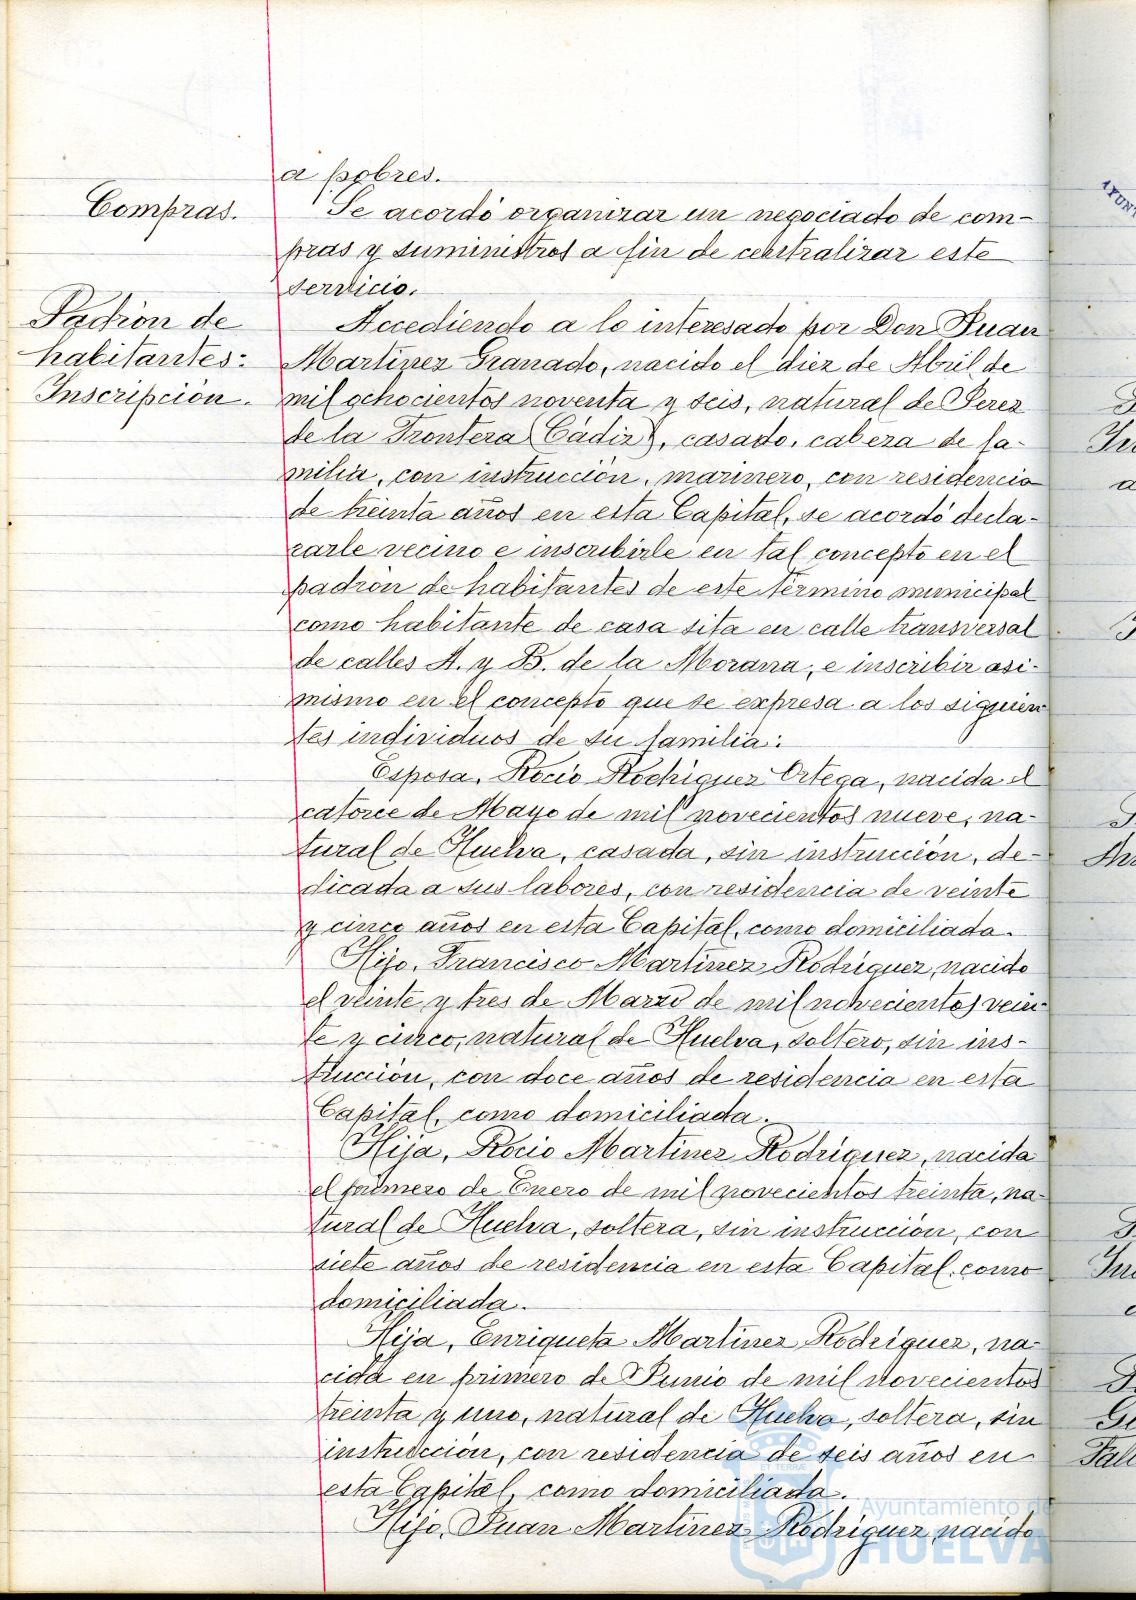 a pobres.
Compras.
Se acordó organizar un negociado de com-
pras y suministros a fin de centralizar este
servicio.
Padrón de
habitantes:
Inscripción.
Accediendo a lo interesado por Don Juan
Martínez Granado, nacido el diez de Abril de
mil ochocientos noventa y seis, natural de Jerez
de la Frontera (Cádiz), casado, cabeza de fa-
milia, con instrucción, marinero, con residencia
de treinta años en esta Capital, se acordó decla-
rarle vecino e inscribirle en tal concepto en el
padrón de habitantes de este término municipal
como habitante de casa sita en calle transversal
de calles A. y B. de la Morana, e inscribir asi-
mismo en el concepto que se expresa a los siguien
tes individuos de su familia:
Esposa, Rocío Rodríguez Ortega, nacida el
catorce de Mayo de mil novecientos nueve, na-
tural de Huelva, casada, sin instrucción, de-
dicada a sus labores, con residencia de veinte
y cinco años en esta Capital, como domiciliada.
Hijo, Francisco Martínez Rodríguez, nacido
el veinte y tres de Marzo de mil novecientos vein-
te y cinco, natural de Huelva, soltero, sin ins-
trucción, con doce años de residencia en esta
Capital, como domiciliada.
Hija, Rocio Martínez Rodríguez, nacida
el primero de Enero de mil novecientos treinta, na-
tural de Huelva, soltera, sin instrucción, con
siete años de residencia en esta Capital, como
domiciliada.
Hija, Enriqueta Martínez Rodríguez, na-
cida en primero de Junio de mil novecientos
treinta y uno, natural de Huelva, soltera, sin
instrucción, con residencia de seis años en
esta Capital, como domiciliada.
Hijo, Juan Martínez Rodríguez, nacido
Ayuntamiento de
HUELVA